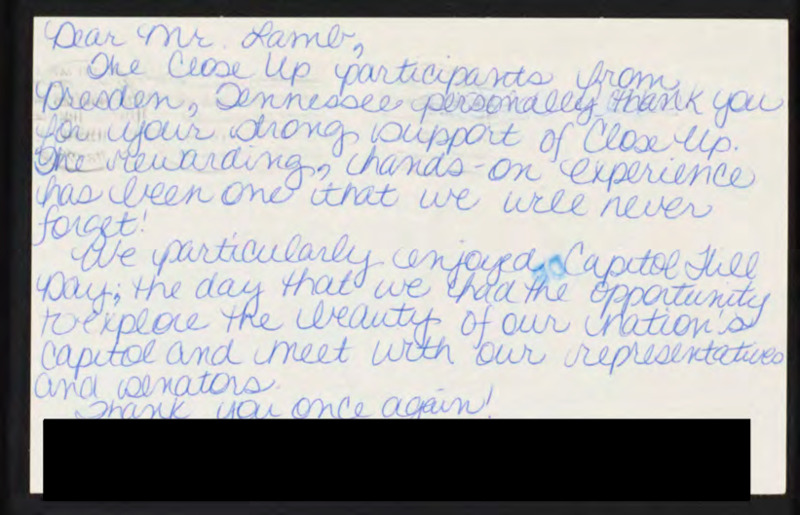 Dear Mr. Lamb,
The Close Up participants from
Dresden, Tennessee personally thank you
for your strong support of Close-Up.
The rewarding, hands-on experience
has been one that we will never
forget!
We particularly enjoyed Capitol Hill
Day; the day that we had the opportunity
to explore the beauty of our nation's
capitol and meet with our representatives
and senators.
Thank you once again!